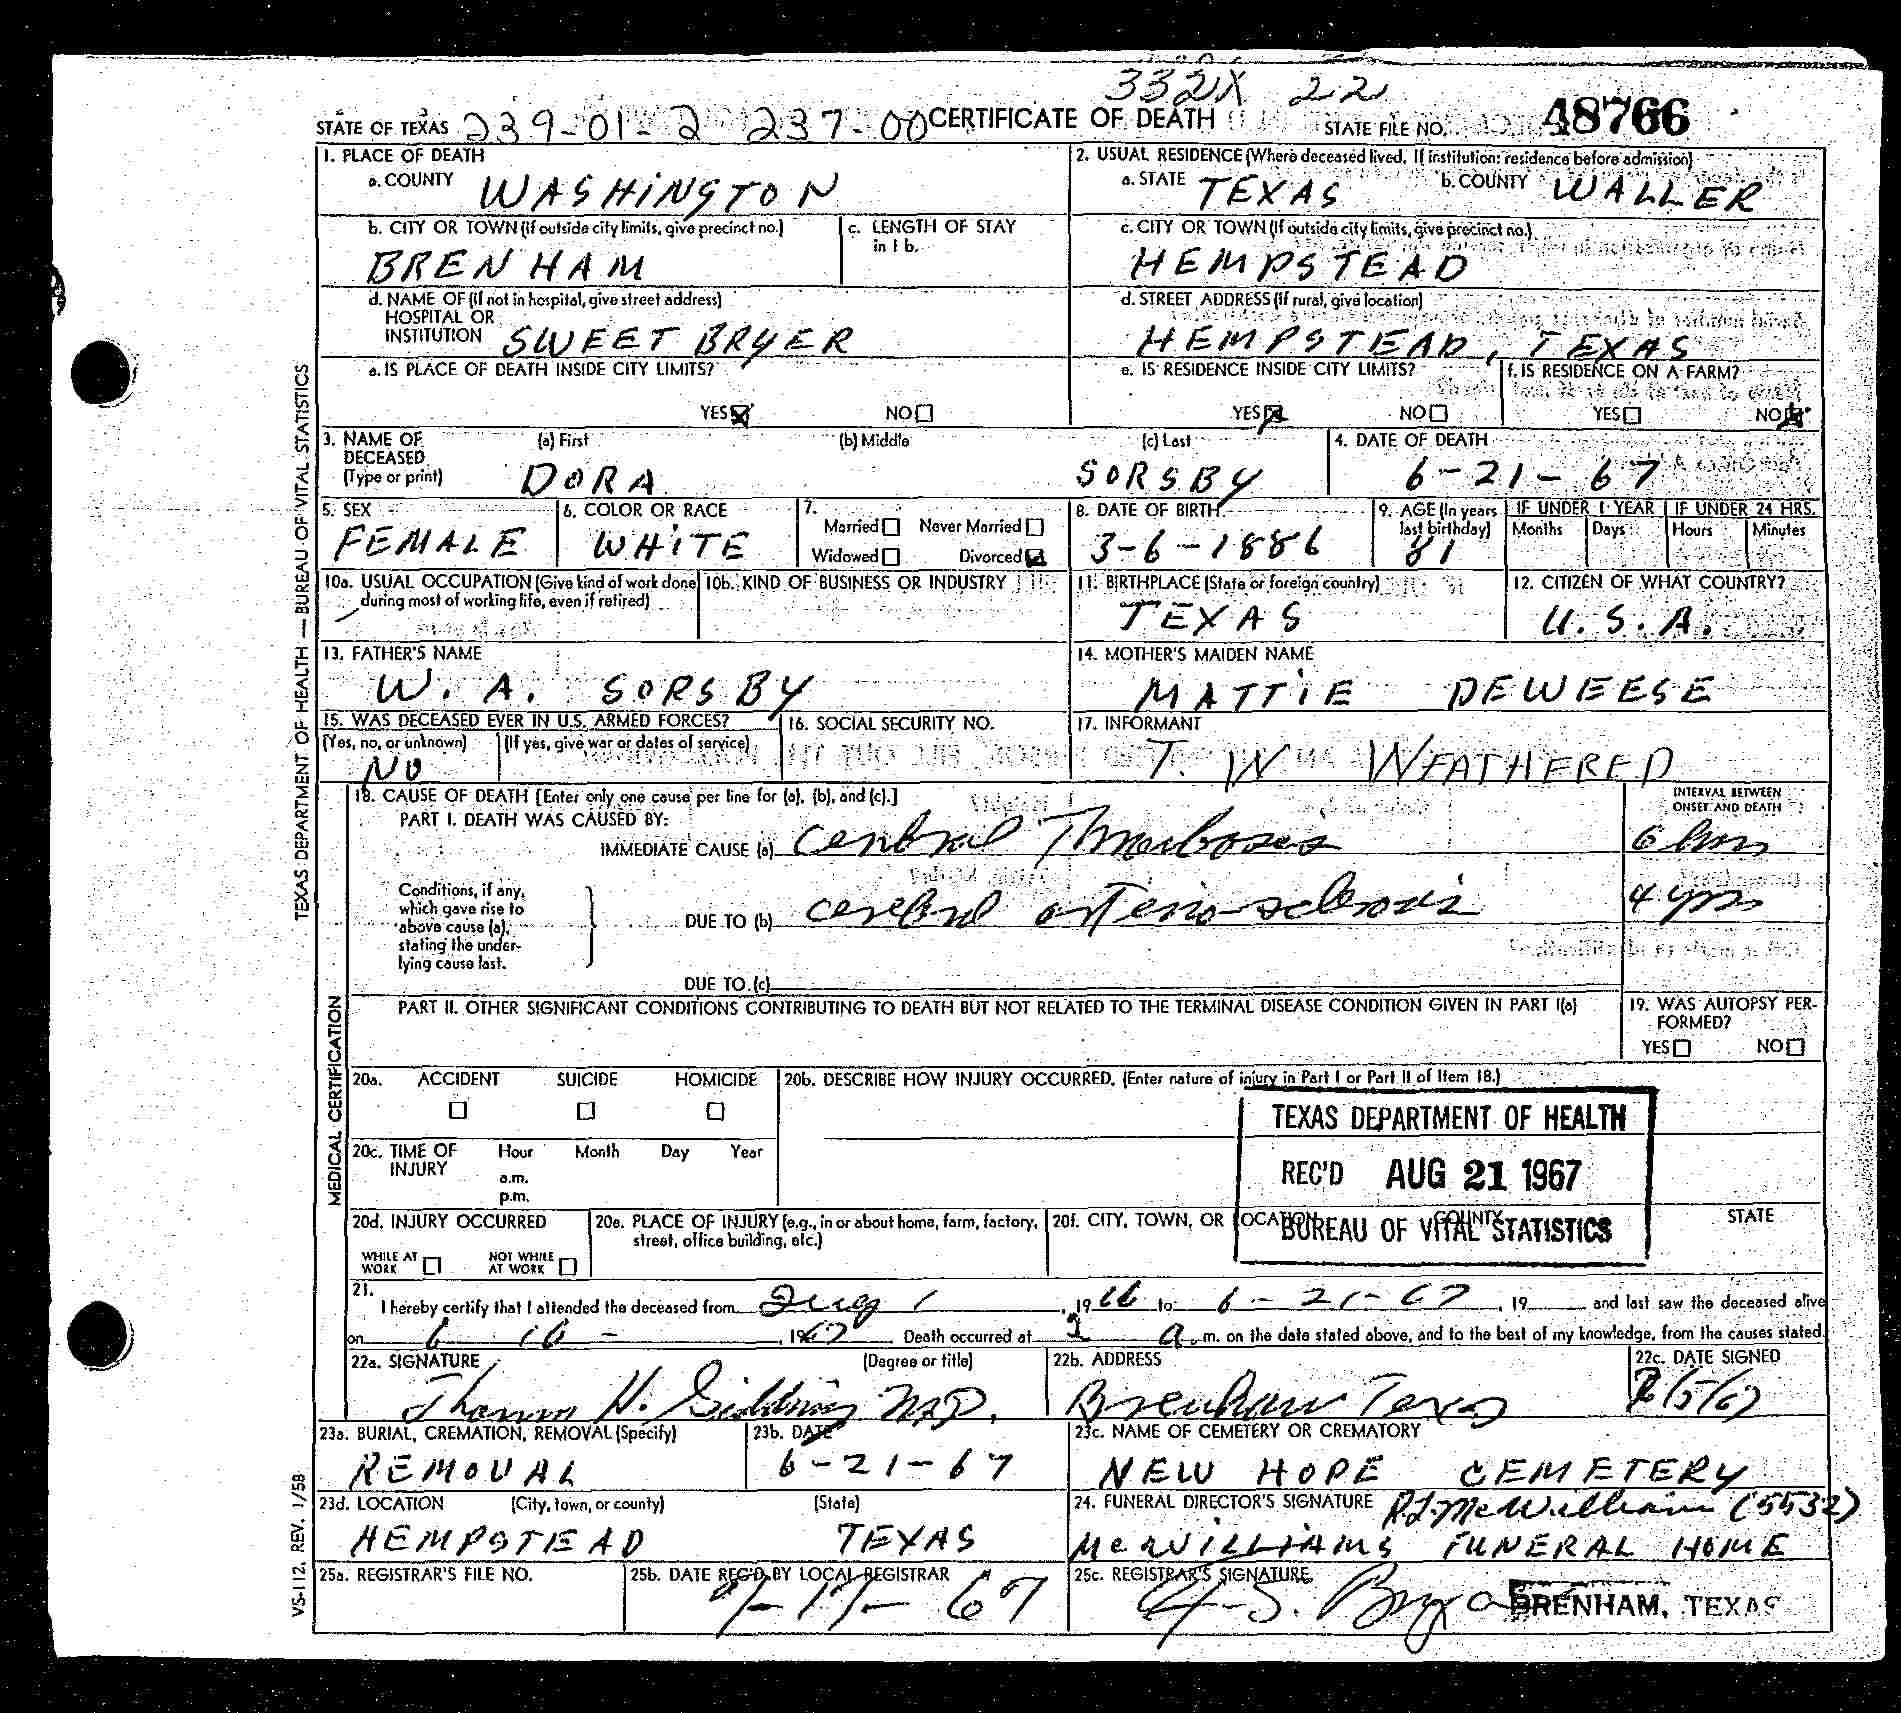 332X 22
STATE OF TEXAS 239-01-2 237-00 CERTIFICATE OF DEATH STATE FILE NO. 48766
1. PLACE OF DEATH
a. COUNTY WASHINGTON
2. USUAL RESIDENCE (Where deceased lived. If institution: residence before admission)
a. STATE TEXAS b. COUNTY WALLER
b. CITY OR TOWN (If outside city limits, give precinct no.)
BRENHAM
c. LENGTH OF STAY
in 1 b.
c. CITY OR TOWN (If outside city limits, give precinct no.)
HEMPSTEAD
d. NAME OF (If not in hospital, give street address)
HOSPITAL OR
INSTITUTION SWEET BRYER
d. STREET ADDRESS (If rural, give location)
HEMPSTEAD, TEXAS
e. IS PLACE OF DEATH INSIDE CITY LIMITS?
YES NO
e. IS RESIDENCE INSIDE CITY LIMITS?
YES NO
f. IS RESIDENCE ON A FARM?
YES NO
3. NAME OF
DECEASED
(Type or print)
(a) First (b) Middle (c) Last
DORA SORSBY
4. DATE OF DEATH
6-21-67
5. SEX
FEMALE
6. COLOR OR RACE
WHITE
7.
Married Never Married
Widowed Divorced
8. DATE OF BIRTH
3-6-1886
9. AGE (In years
last birthday)
81
IF UNDER 1 YEAR
Months Days
IF UNDER 24 HRS.
Hours Minutes
10a. USUAL OCCUPATION (Give kind of work done
during most of working life, even if retired)
10b. KIND OF BUSINESS OR INDUSTRY
11. BIRTHPLACE (State or foreign country)
TEXAS
12. CITIZEN OF WHAT COUNTRY?
U.S.A.
13. FATHER'S NAME
W. A. SORSBY
14. MOTHER'S MAIDEN NAME
MATTIE DEWEESE
15. WAS DECEASED EVER IN U.S. ARMED FORCES?
(Yes, no, or unknown) (If yes, give war or dates of service)
NO
16. SOCIAL SECURITY NO.
17. INFORMANT
T. W WEATHERED
18. CAUSE OF DEATH [Enter only one cause per line for (a), (b), and (c).]
PART I. DEATH WAS CAUSED BY:
INTERVAL BETWEEN
ONSET AND DEATH
IMMEDIATE CAUSE (a) cerebral Thrombosis 6 hrs
Conditions, if any,
which gave rise to
above cause (a),
stating the under-
lying cause last.
DUE TO (b) cerebral arterio-sclerosis 4 yrs
DUE TO (c)
PART II. OTHER SIGNIFICANT CONDITIONS CONTRIBUTING TO DEATH BUT NOT RELATED TO THE TERMINAL DISEASE CONDITION GIVEN IN PART I(a)
19. WAS AUTOPSY PER-
FORMED?
YES NO
20a. ACCIDENT SUICIDE HOMICIDE
20b. DESCRIBE HOW INJURY OCCURRED. (Enter nature of injury in Part I or Part II of Item 18.)
TEXAS DEPARTMENT OF HEALTH
REC'D AUG 21 1967
BUREAU OF VITAL STATISTICS
20c. TIME OF
INJURY
Hour Month Day Year
a.m.
p.m.
20d. INJURY OCCURRED
WHILE AT
WORK
NOT WHILE
AT WORK
20e. PLACE OF INJURY (e.g., in or about home, farm, factory,
street, office building, etc.)
20f. CITY, TOWN, OR LOCATION COUNTY STATE
21.
I hereby certify that I attended the deceased from Aug 1, 1966 to 6-21-67, 19 and last saw the deceased alive
on 6 16 -, 1967 Death occurred at 2 a.m. on the date stated above, and to the best of my knowledge, from the causes stated.
22a. SIGNATURE (Degree or title)
Thomas H. Giddings M.D.
22b. ADDRESS
Brenham Texas
22c. DATE SIGNED
23a. BURIAL, CREMATION, REMOVAL (Specify)
REMOVAL
23b. DATE
6-21-67
23c. NAME OF CEMETERY OR CREMATORY
NEW HOPE CEMETERY
23d. LOCATION (City, town, or county) (State)
HEMPSTEAD TEXAS
24. FUNERAL DIRECTOR'S SIGNATURE R.L. McWilliams (5532)
McWILLIAMS FUNERAL HOME
25a. REGISTRAR'S FILE NO.
25b. DATE REC'D BY LOCAL REGISTRAR
25c. REGISTRAR'S SIGNATURE
BRENHAM, TEXAS
TEXAS DEPARTMENT OF HEALTH — BUREAU OF VITAL STATISTICS
MEDICAL CERTIFICATION
VS-112. REV. 1/58